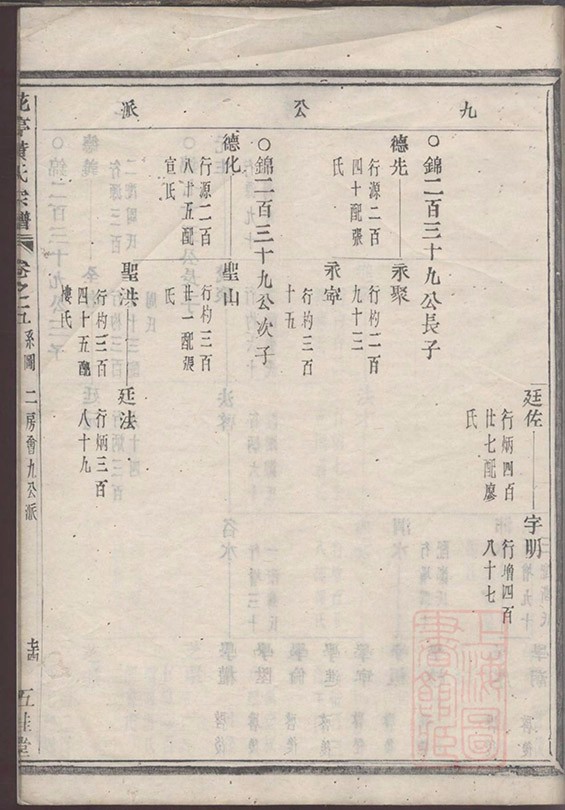 九公派
廷佐
行炳四百
廿七配廖
氏
字明
行增四百
八十七
○錦二百三十九公長子
德先
行源二百
四十配張
氏
永聚
行杓二百
九十三
永寧
行杓三百
十五
○錦二百三十九公次子
德化
行源二百
八十五配
宣氏
聖山
行杓三百
廿一配張
氏
聖洪
行杓三百
四十五配
樓氏
廷法
行炳三百
八十九
花亭黃氏宗譜
卷之五
系圖
二房會九公派
五桂堂
上海圖書館藏